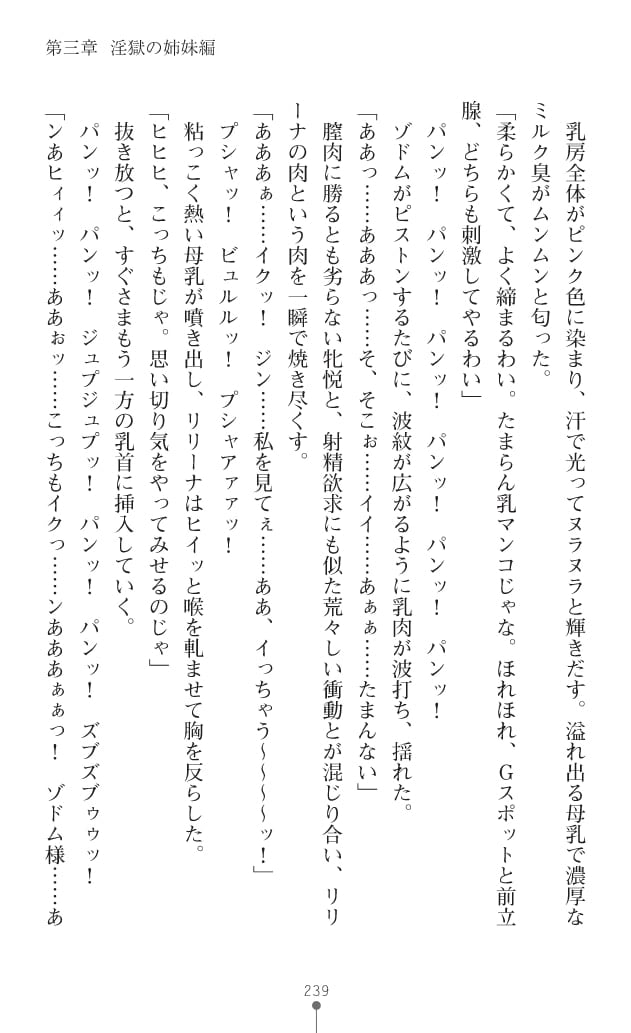 第三章 淫獄の姉妹編
　乳房全体がピンク色に染まり、汗で光ってヌラヌラと輝きだす。溢れ出る母乳で濃厚な
ミルク臭がムンムンと匂った。
「柔らかくて、よく締まるわい。たまらん乳マンコじゃな。ほれほれ、Gスポットと前立
腺、どちらも刺激してやるわい」
　パンッ！　パンッ！　パンッ！　パンッ！　パンッ！　パンッ！
　ゾドムがピストンするたびに、波紋が広がるように乳肉が波打ち、揺れた。
「ああっ……あああっ……そ、そこぉ……イイ……あぁぁ……たまんない」
　膣肉に勝るとも劣らない牝悦と、射精欲求にも似た荒々しい衝動とが混じり合い、リリ
ーナの肉という肉を一瞬で焼き尽くす。
「あああぁ……イクッ！　ジン……私を見てぇ……ああ、イっちゃう～～～～ッ！」
　プシャッ！　ビュルルッ！　プシャアァァッ！
　粘っこく熱い母乳が噴き出し、リリーナはヒイッと喉を軋ませて胸を反らした。
「ヒヒヒ、こっちもじゃ。思い切り気をやってみせるのじゃ」
　抜き放つと、すぐさまもう一方の乳首に挿入していく。
　パンッ！　パンッ！　ジュプジュプッ！　パンッ！　パンッ！　ズブズブゥゥッ！
「ンあヒィィッ……ああぉッ……こっちもイクっ……ンあああぁぁっ！　ゾドム様……あ
239